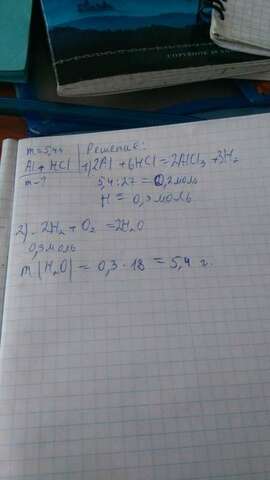 m=5,4г
Решение:
Al + HCl
1) 2Al + 6HCl = 2AlCl₃ + 3H₂
m-?
5,4:27 = 0,2моль
H = 0,3моль
2) 2H₂ + O₂ = 2H₂O
0,3моль
m(H₂O) = 0,3 · 18 = 5,4 г.